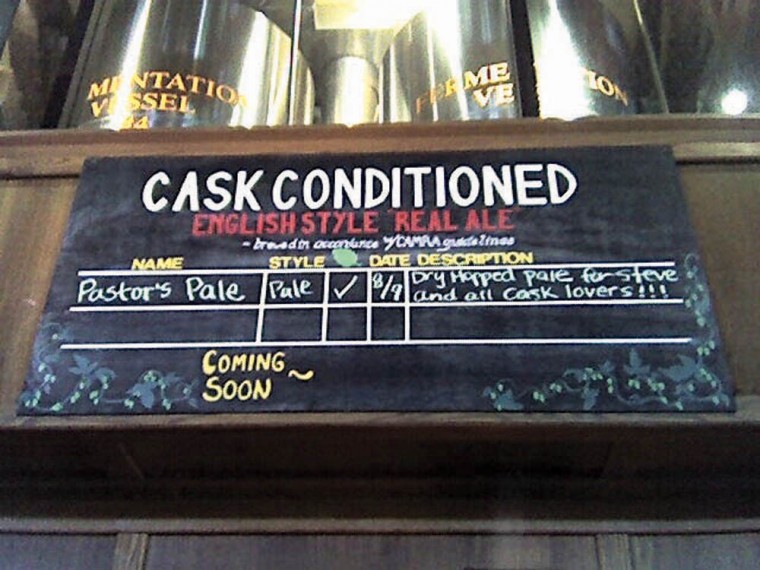 MENTATION
VESSEL
24
FERME
VE
ION
CASK CONDITIONED
ENGLISH STYLE "REAL ALE"
~ brewed in accordance w/CAMRA guidelines
NAME STYLE DATE DESCRIPTION
Pastor's Pale Pale ✓ 8/9 Dry Hopped pale for Steve
and all cask lovers!!!
COMING ~
SOON